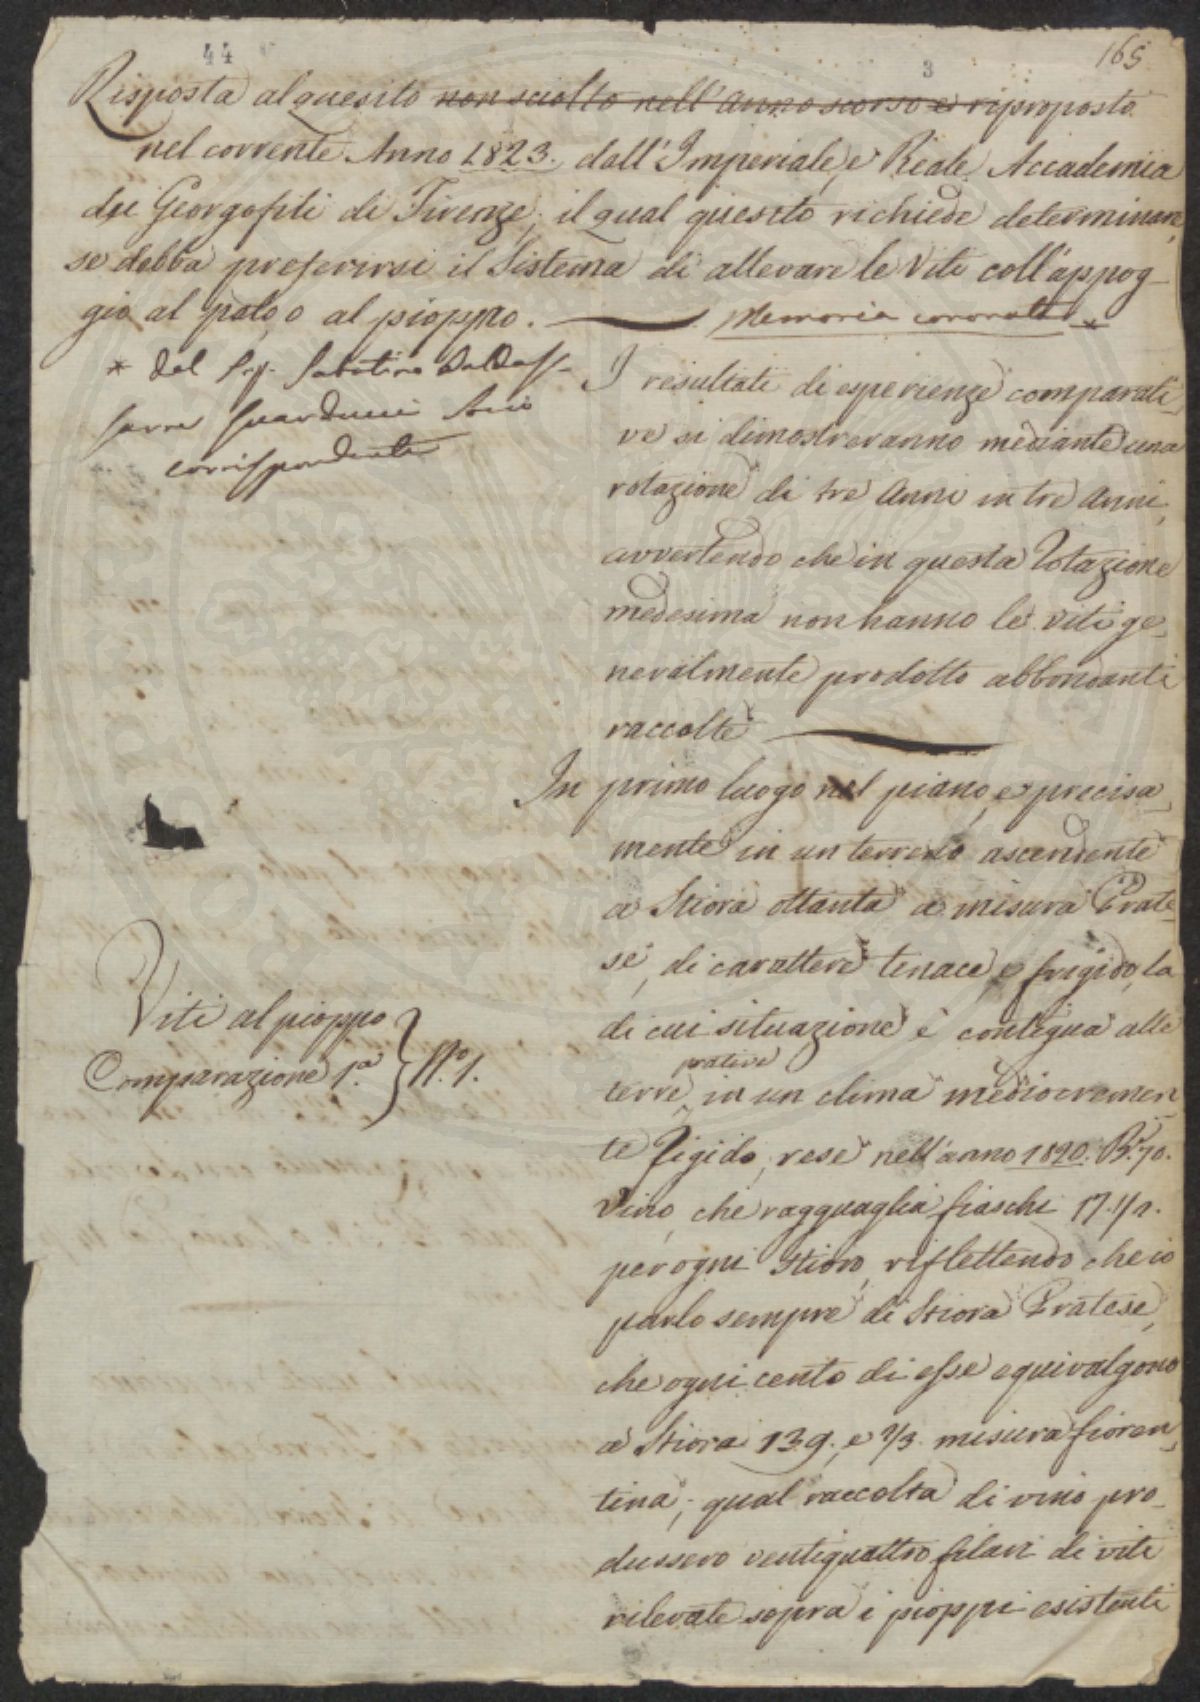 44
3
165
Risposta al quesito non sciolto nell'anno scorso e riproposto
nel corrente Anno 1823. dall'Imperiale, e Reale Accademia
dei Georgofili di Firenze, il qual quesito richiede determinare
se debba preferirsi il Sistema di allevare le Viti coll'appog-
gio al palo, o al pioppo. Memoria coronata *
* del Sig.
Guarducci Socio
corrispondente
I resultati di esperienze comparati-
ve si dimostreranno mediante una
rotazione di tre Anni in tre Anni,
avvertendo che in questa rotazione
medesima non hanno le viti ge-
neralmente prodotto abbondanti
raccolte
In primo luogo nel piano, e precisa-
mente in un terreno ascendente
a Stiora ottanta a misura Prate-
se, di carattere tenace, e frigido, la
di cui situazione è contigua alle
terre prative in un clima mediocremen-
te rigido, rese nell'anno 1820. B. 70.
Vino, che ragguaglia fiaschi 17. 1/2.
per ogni Stioro, riflettendo che io
parlo sempre di Stiora Pratese,
che ogni cento di esse equivalgono
a Stiora 139. e 2/3. misura fioren-
tina; qual raccolta di vino pro-
dussero ventiquattro filari di viti
rilevate sopra i pioppi esistenti
Viti al pioppo
Comparazione 1.a } N.o 1.